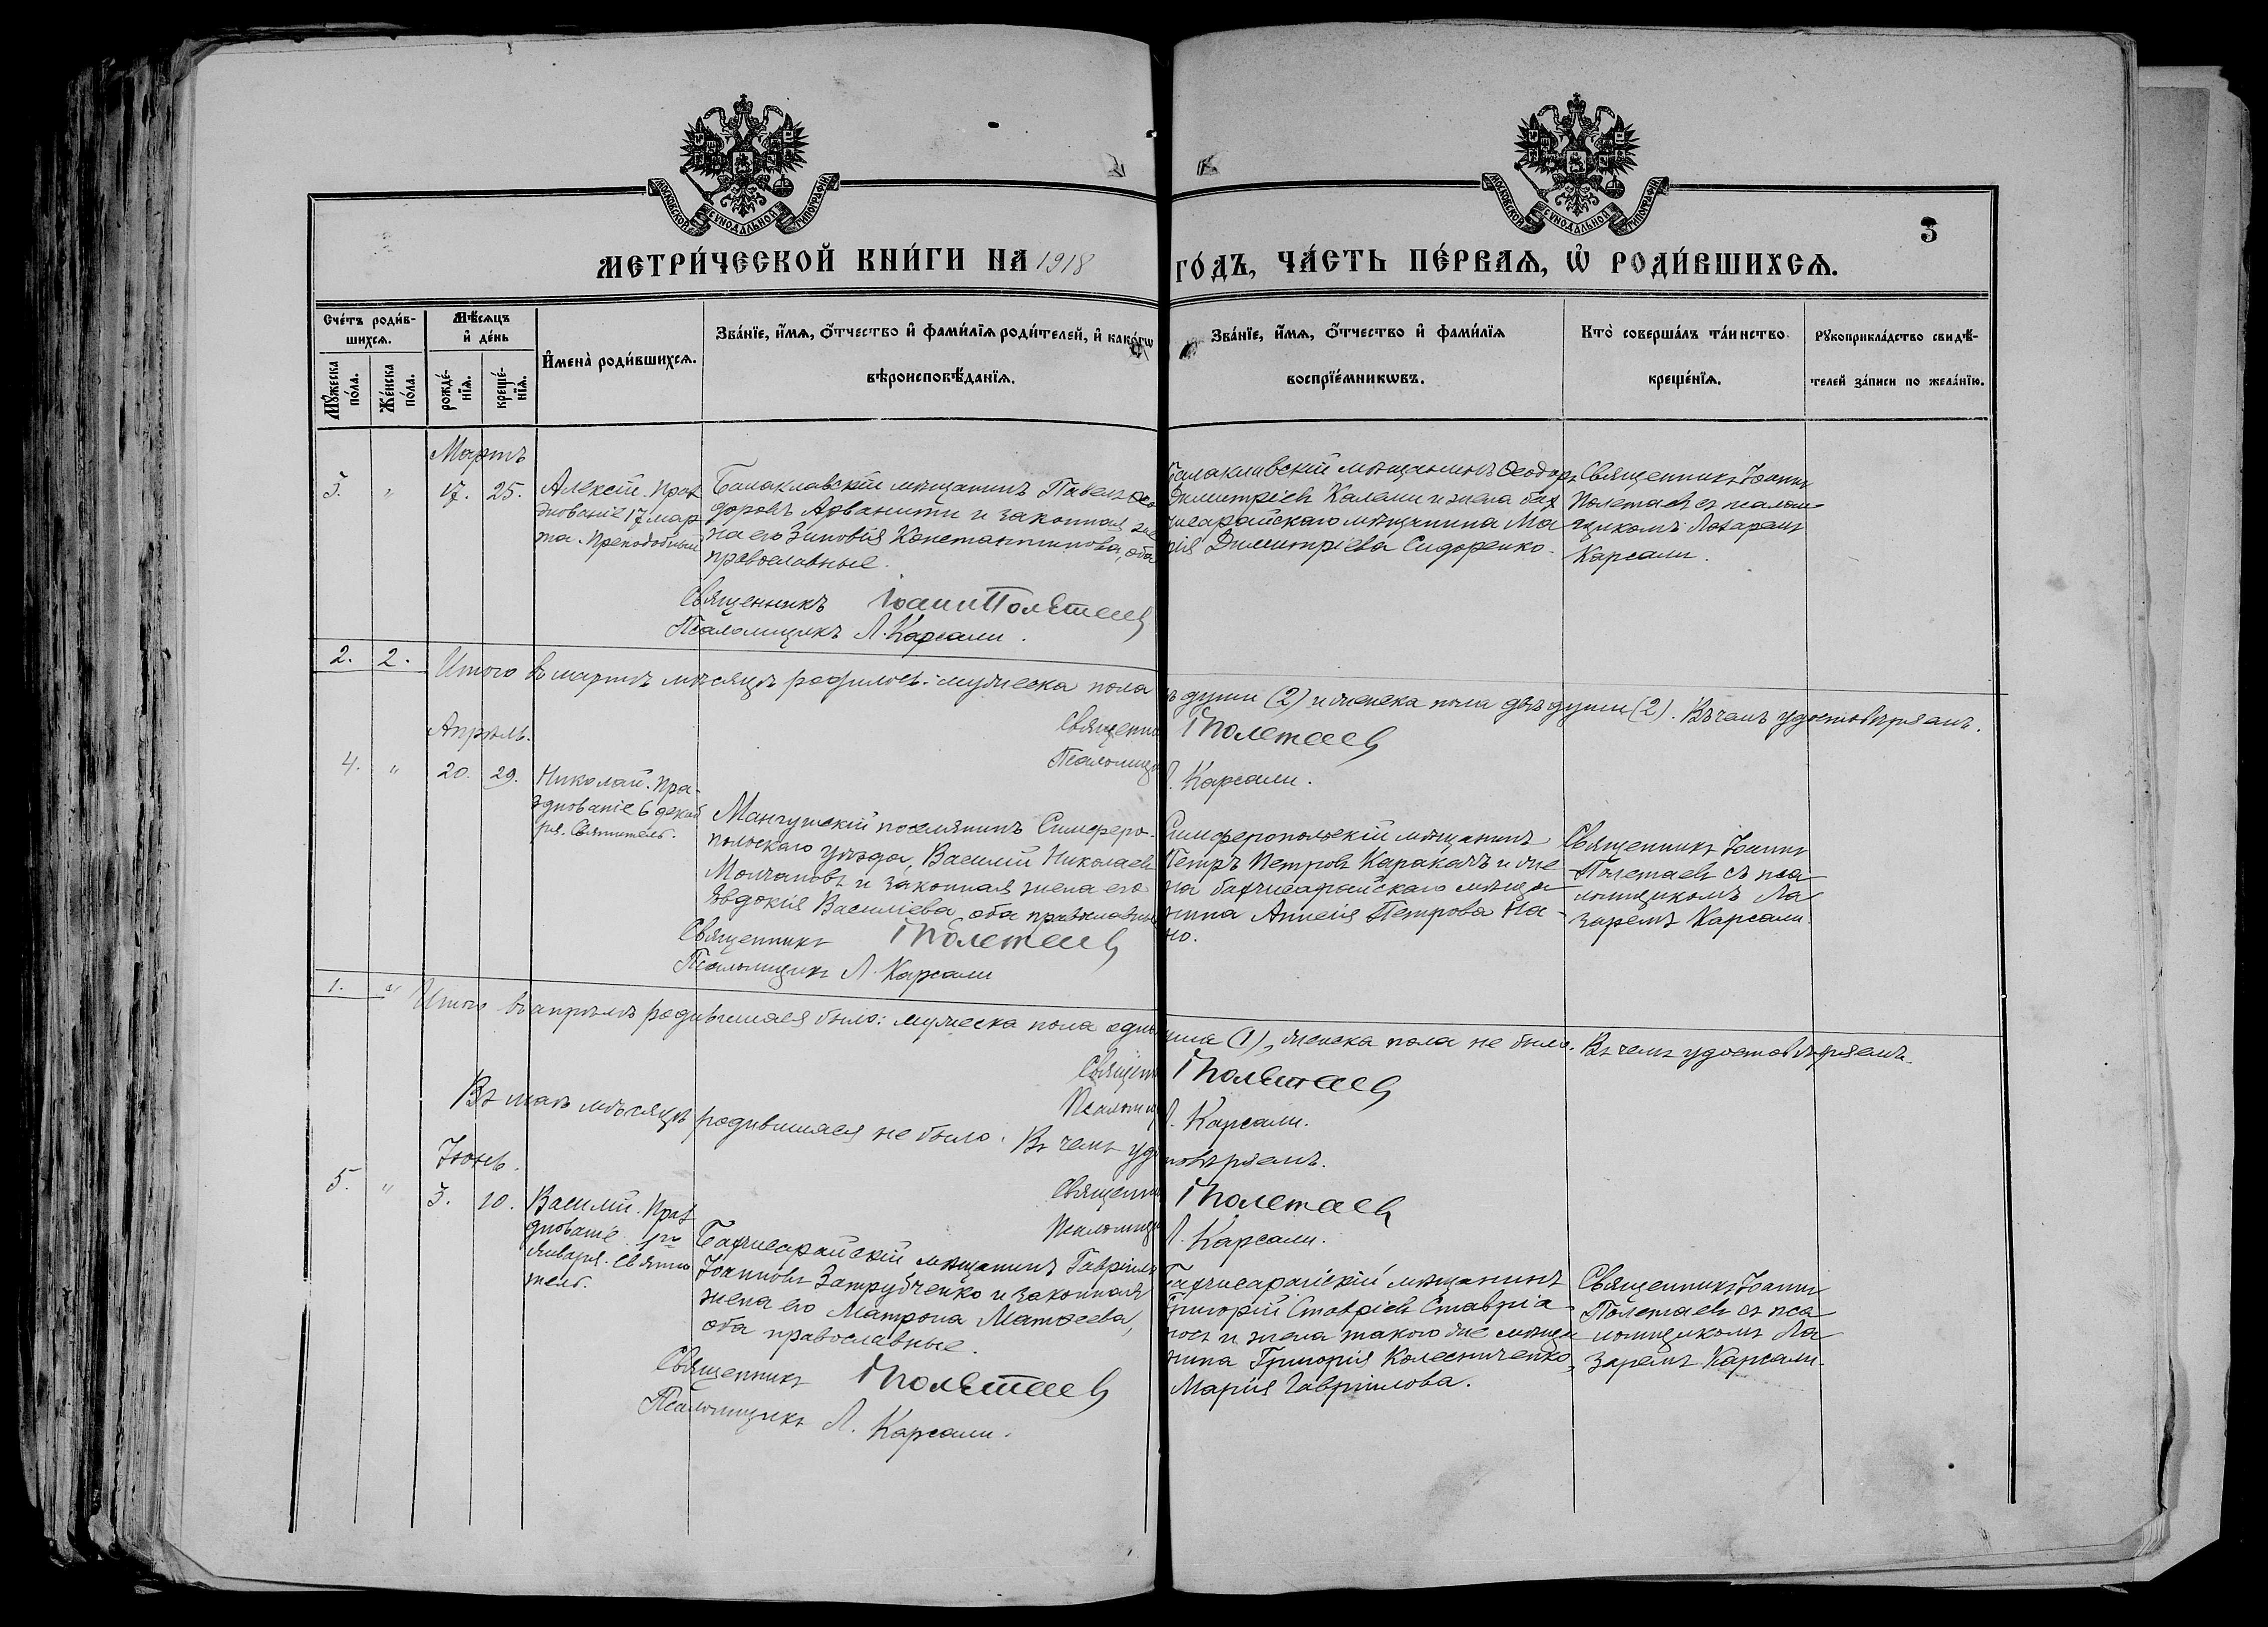 МОСКОВСКОЙ СѴНОДАЛЬНОЙ ТИПОГРАФІИ
МОСКОВСКОЙ СѴНОДАЛЬНОЙ ТИПОГРАФІИ
3
МЕТРИ́ЧЕСКОЙ КНИ́ГИ НА 1918 ГО́ДЪ, ЧА́СТЬ ПЕ́РВАѦ, Ѡ҆ РОДИ́ВШИХСѦ.
Сче́тъ роди́в-
шихсѧ.
Мꙋ́жеска по́ла.
Же́нска по́ла.
Мѣ́сѧцъ
и҆ де́нь
рожде́-нїѧ.
креще́-нїѧ.
И҆мена̀ роди́вшихсѧ.
Зва́нїе, и҆́мѧ, ѻ҆́тчество и҆ фами́лїѧ роди́телей, и҆ како́гѡ
вѣроисповѣ́данїѧ.
Зва́нїе, и҆́мѧ, ѻ҆́тчество и҆ фами́лїѧ
воспрїе́мникѡвъ.
Кто̀ соверша́лъ та́инство
креще́нїѧ.
Рꙋкоприкла́дство свидѣ́-
телей за́писи по жела́нїю.
Мартъ
3. " 17. 25.
Алексій. Праз
днованіе 17 мар
та. Преподобный
Балаклавскій мѣщанинъ Павелъ Ѳео
доровъ Адванити и законная же
на его Зиновія Константинова, оба
православные.
Балаклавскій мѣщанинъ Ѳеодоръ
Димитріевъ Калами и жена бах
чисарайскаго мѣщанина Ма
рія Димитріева Сидоренко.
Священникъ Іоаннъ
Полетаевъ съ псалом
щикомъ Лазаремъ
Карсали.
Священникъ Іоаннъ Полетаевъ
Псаломщикъ Л. Карсали.
2. 2. Итого въ мартѣ мѣсяцѣ родилось: мужеска пола
ѣ души (2) и женска пола двѣ души (2). Въ чемъ удостовѣряемъ.
Священни І Полетаевъ
Псаломщи Л. Карсали.
Апрѣль.
4. " 20. 29.
Николай. Пра-
зднованіе 6 декаб
ря. Святитель.
Мангушскій поселянинъ Симферо-
польскаго уѣзда, Василій Николаевъ
Молчановъ и законная жена его
Евдокія Василіева, оба православные
Симферопольскій мѣщанинъ
Петръ Петровъ Каракачъ и же
на бахчисарайскаго мѣща
нина Аннеія Петрова На-
но.
Священникъ Іоаннъ
Полетаевъ съ пса
ломщикомъ Ла
заремъ Карсали.
Священникъ І Полетаевъ
Псаломщикъ Л. Карсали
1. " Итого въ апрѣлѣ родившихся было: мужеска пола одна
уша (1), женска пола не было. Въ чемъ удостовѣряемъ.
Священ І Полетаевъ
Псаломщ Л. Карсали.
Въ маѣ мѣсяцѣ родившихся не было. Въ чемъ удо
товѣряемъ.
Священни І Полетаевъ
Псаломщи Л. Карсали.
Іюнь.
5. " 3. 10.
Василій. Праз
днованіе 1го
Января. Святи
тель.
Бахчисарайскій мѣщанинъ Гавріилъ
Іоанновъ Затрубченко и законная
жена его Матрона Матѳеева,
оба православные.
Бахчисарайскій мѣщанинъ
Григорій Ставріевъ Ставріа-
носъ и жена такого же мѣща
нина Григорія Колесниченко,
Марія Гавріилова.
Священникъ Іоаннъ
Полетаевъ съ пса
ломщикомъ Ла
заремъ Карсали.
Священникъ І Полетаевъ
Псаломщикъ Л. Карсали.